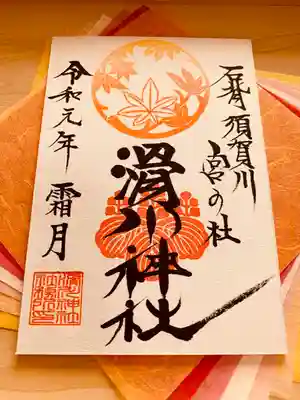 奉拝 須賀川
宮の杜
滑川神社
令和元年 霜月